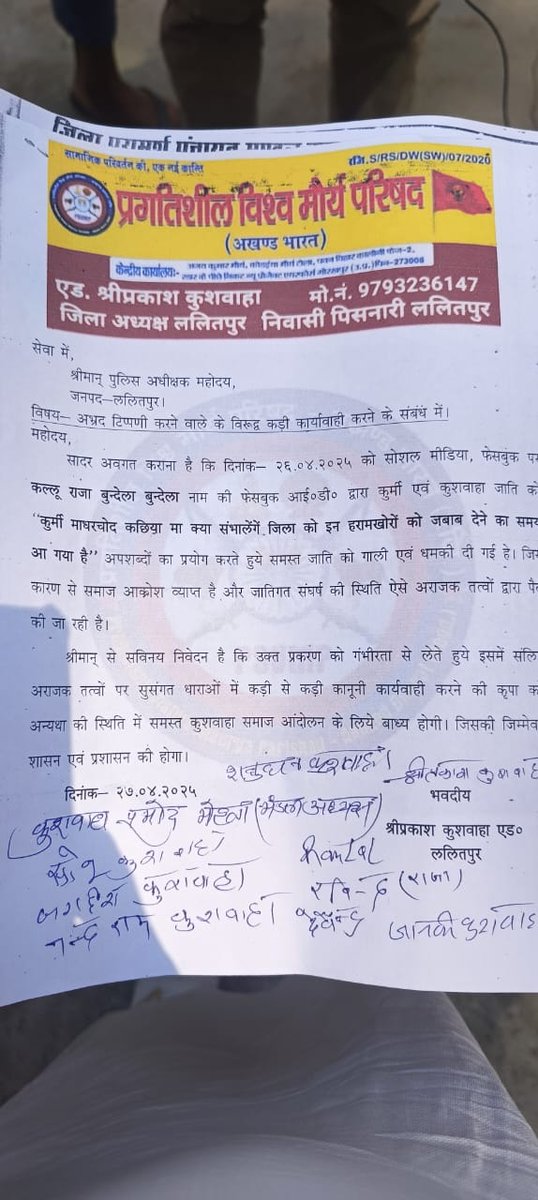 जिला परामर्श पंचायत
सामाजिक परिवर्तन की, एक नई क्रान्ति
रजि.S/RS/DW(SW)/07/2020
प्रगतिशील विश्व मौर्य परिषद
(अखण्ड भारत)
केन्द्रीय कार्यालयः-
एड. श्रीप्रकाश कुशवाहा मो.नं. 9793236147
जिला अध्यक्ष ललितपुर निवासी पिसनारी ललितपुर
सेवा में,
श्रीमान् पुलिस अधीक्षक महोदय,
जनपद–ललितपुर।
विषय– अभ्रद टिप्पणी करने वाले के विरूद्व कड़ी कार्यावाही करने के संबंध में।
महोदय,
सादर अवगत कराना है कि दिनांक– २६.०४.२०२५ को सोशल मीडिया, फेसबुक
कल्लू राजा बुन्देला बुन्देला नाम की फेसबुक आई०डी० द्वारा कुर्मी एवं कुशवाहा जाति को
“कुर्मी माधरचोद कछिया मा क्या संभालेंगें जिला को इन हरामखोरों को जबाब देने का समय
आ गया है” अपशब्दों का प्रयोग करते हुये समस्त जाति को गाली एवं धमकी दी गई है।
कारण से समाज आक्रोश व्याप्त है और जातिगत संघर्ष की स्थिति ऐसे अराजक तत्वों द्वारा
की जा रही है।
श्रीमान् से सविनय निवेदन है कि उक्त प्रकरण को गंभीरता से लेते हुये इसमें
अराजक तत्वों पर सुसंगत धाराओं में कड़ी से कड़ी कानूनी कार्यवाही करने की कृपा
अन्यथा की स्थिति में समस्त कुशवाहा समाज आंदोलन के लिये बाध्य होगी। जिसकी
शासन एवं प्रशासन की होगा।
कुशवाहा
दिनांक– २७.०४.२०२५
भवदीय
कुशवाहा प्रमोद
श्रीप्रकाश कुशवाहा एड०
ललितपुर
सोनू कुशवाहा
Ramlal
जगदीश कुशवाहा
रविन्द्र (राजा)
राम कुशवाहा
देवेन्द्र
जानकी कुशवाहा